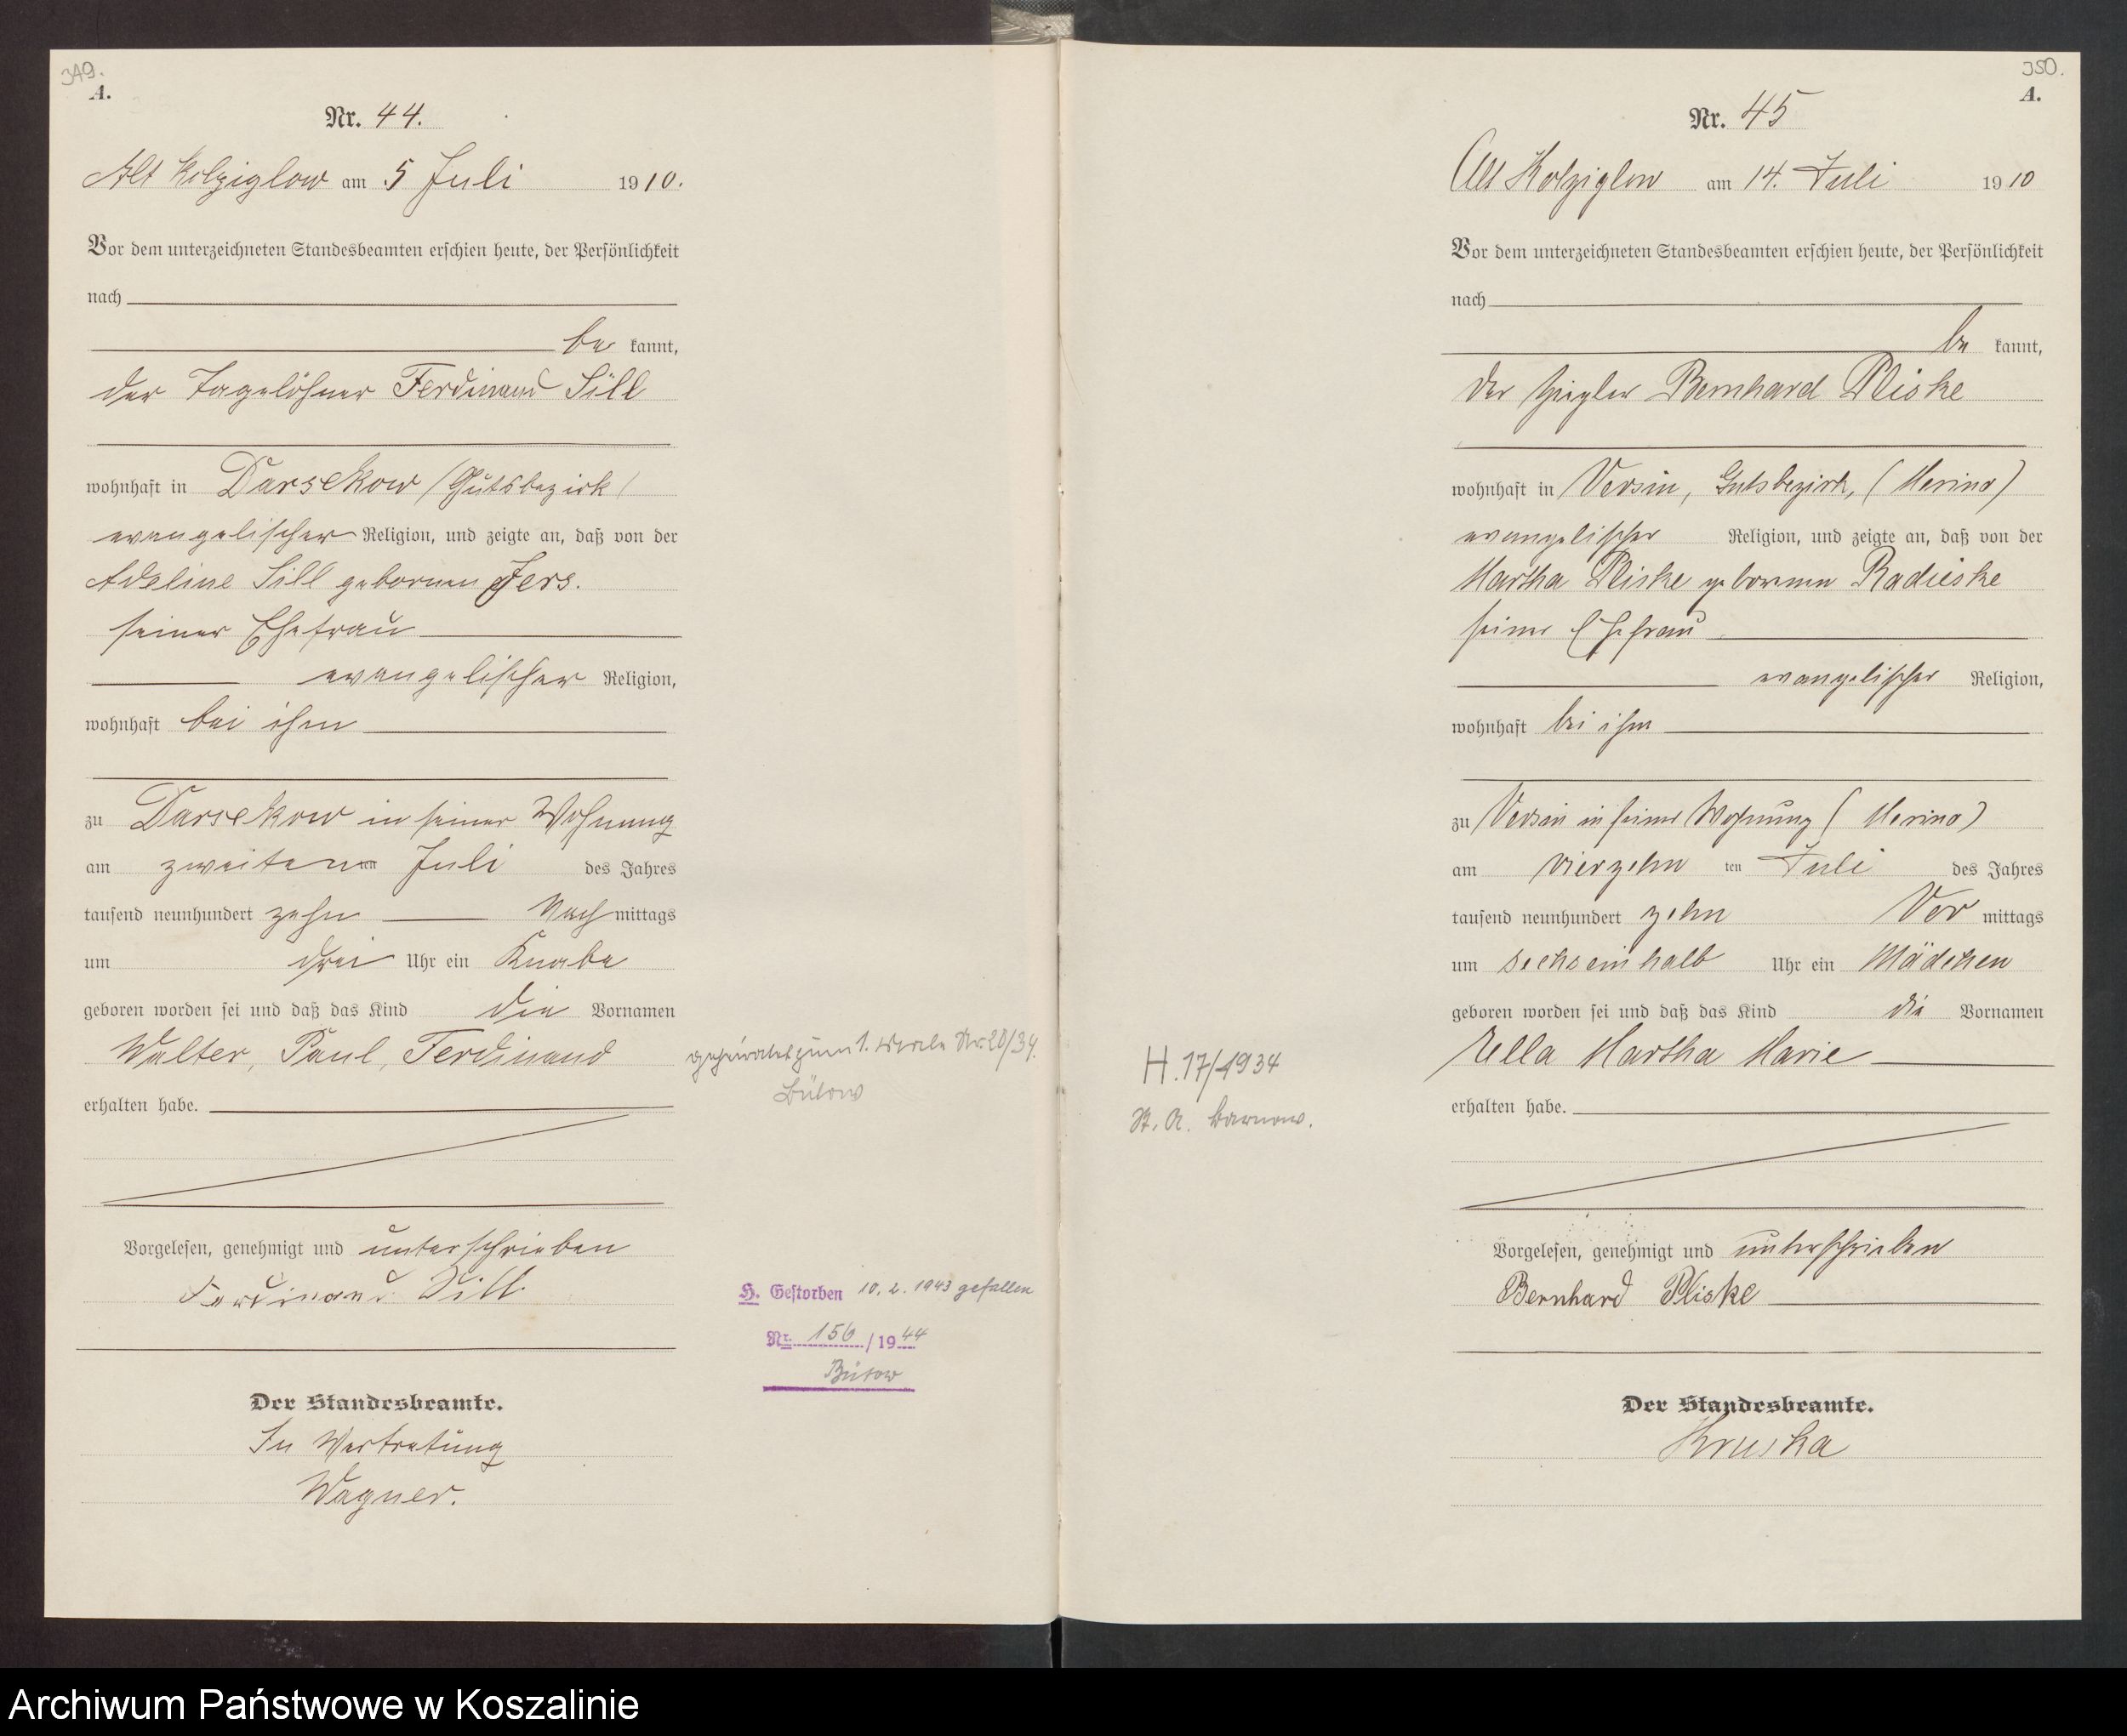 349.
A.
Nr. 44.
Alt Kolziglow am 5 Juli 1910.
Vor dem unterzeichneten Standesbeamten erschien heute, der Persönlichkeit
nach
be kannt,
der Tagelöhner Ferdinand Sill
wohnhaft in Darsekow (Gutsbezirk)
evangelischer Religion, und zeigte an, daß von der
Adeline Sill geborenen Jers.
seiner Ehefrau
evangelischer Religion,
wohnhaft bei ihm
zu Darsekow in seiner Wohnung
am zweiten ten Juli des Jahres
tausend neunhundert zehn Nach mittags
um drei Uhr ein Knabe
geboren worden sei und daß das Kind die Vornamen
Walter, Paul, Ferdinand
erhalten habe.
Vorgelesen, genehmigt und unterschrieben
Ferdinand Sill.
Der Standesbeamte.
In Vertretung
Wagner.
geheiratet zum 1. Male Nr. 20/34.
Bütow
H. Gestorben 10. 2. 1943 gefallen
Nr. 156 / 1944
Bütow
350.
A.
Nr. 45
Alt Kolziglow am 14. Juli 1910
Vor dem unterzeichneten Standesbeamten erschien heute, der Persönlichkeit
nach
be kannt,
der Ziegler Bernhard Pliske
wohnhaft in Versin, Gutsbezirk, (Merino)
evangelischer Religion, und zeigte an, daß von der
Martha Pliske geborenen Radieske
seiner Ehefrau
evangelischer Religion,
wohnhaft bei ihm
zu Versin in seiner Wohnung (Merino)
am vierzehn ten Juli des Jahres
tausend neunhundert zehn Vor mittags
um sechseinhalb Uhr ein Mädchen
geboren worden sei und daß das Kind die Vornamen
Ella Martha Marie
erhalten habe.
H. 17/1934
St. A. Barnow.
Vorgelesen, genehmigt und unterschrieben
Bernhard Pliske
Der Standesbeamte.
Kruska
Archiwum Państwowe w Koszalinie